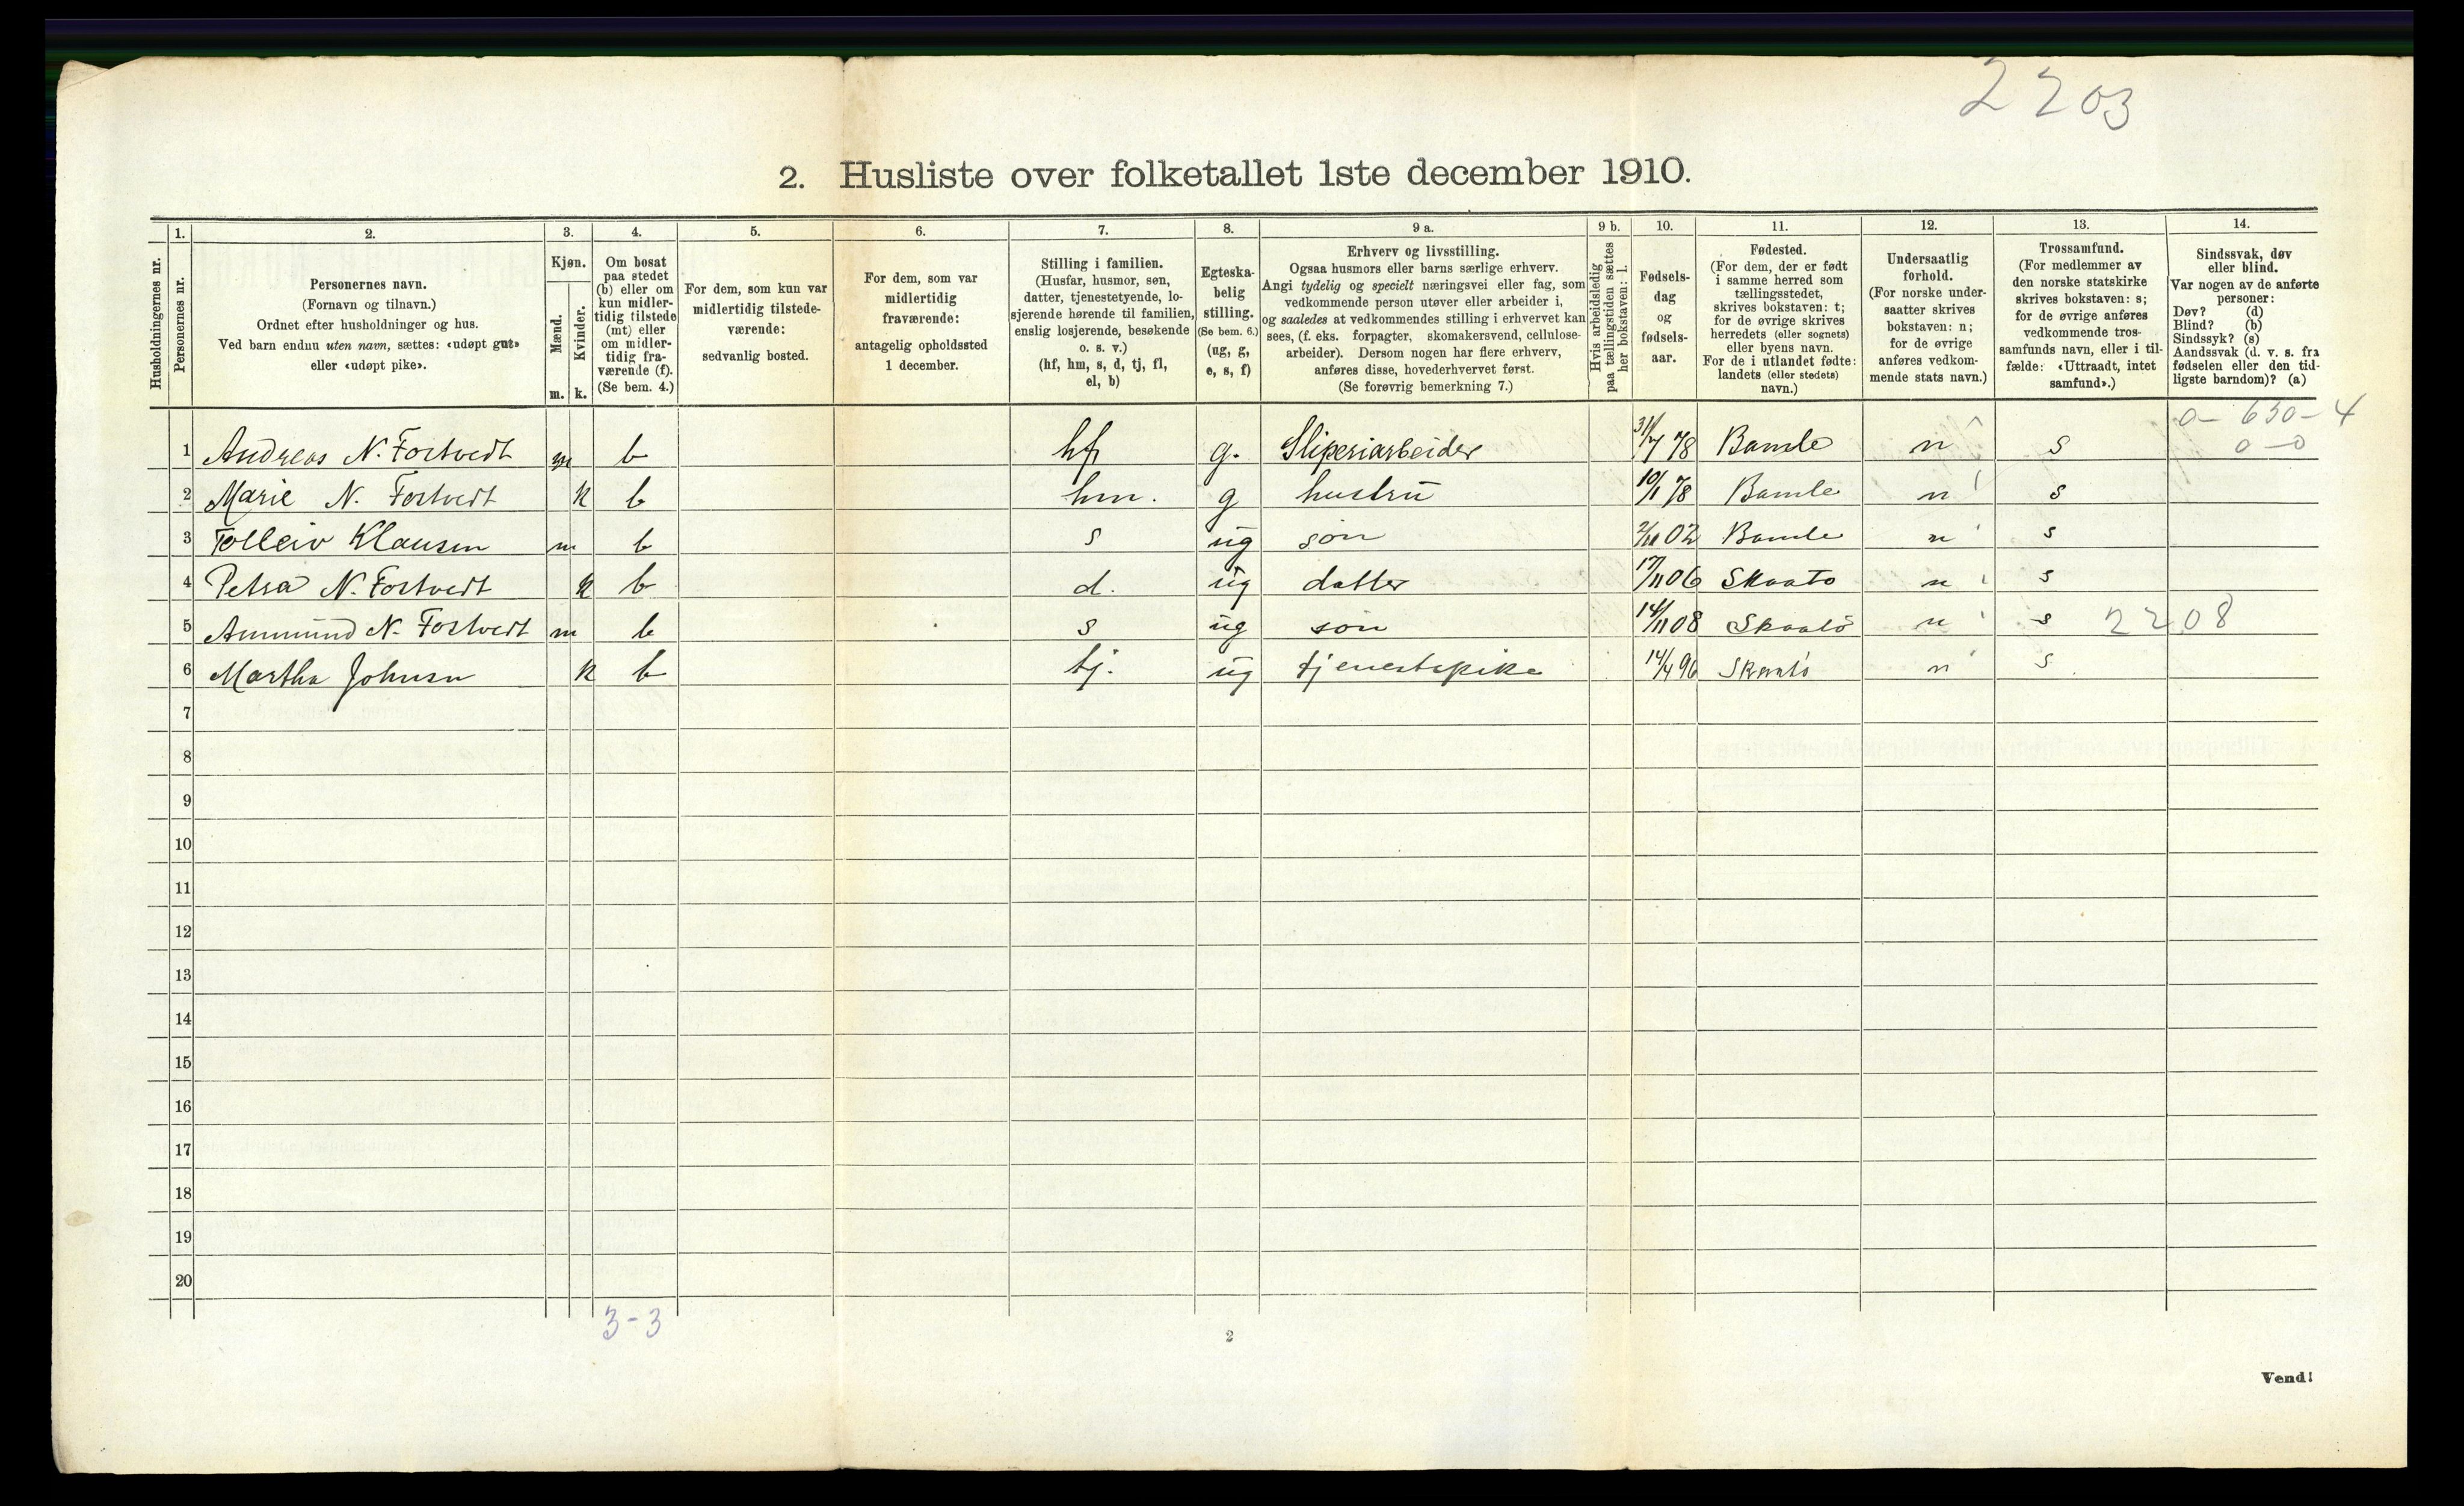 2203
2. Husliste over folketallet 1ste december 1910.
Husholdningernes nr.
1.
Personernes nr.
2.
Personernes navn.
(Fornavn og tilnavn.)
Ordnet efter husholdninger og hus.
Ved barn endnu uten navn, sættes: «udøpt gut»
eller «udøpt pike».
3.
Kjøn.
Mænd.
Kvinder.
m. k.
4.
Om bosat
paa stedet
(b) eller om
kun midler-
tidig tilstede
(mt) eller
om midler-
tidig fra-
værende (f).
(Se bem. 4.)
5.
For dem, som kun var
midlertidig tilstede-
værende:
sedvanlig bosted.
6.
For dem, som var
midlertidig
fraværende:
antagelig opholdssted
1 december.
7.
Stilling i familien.
(Husfar, husmor, søn,
datter, tjenestetyende, lo-
sjerende hørende til familien,
enslig losjerende, besøkende
o. s. v.)
(hf, hm, s, d, tj, fl,
el, b)
8.
Egteska-
belig
stilling.
(Se bem. 6.)
(ug, g,
e, s, f)
9 a.
Erhverv og livsstilling.
Ogsaa husmors eller barns særlige erhverv.
Angi tydelig og specielt næringsvei eller fag, som
vedkommende person utøver eller arbeider i,
og saaledes at vedkommendes stilling i erhvervet kan
sees, (f. eks. forpagter, skomakersvend, cellulose-
arbeider). Dersom nogen har flere erhverv,
anføres disse, hovederhvervet først.
(Se forøvrig bemerkning 7.)
9 b.
Hvis arbeidsledig
paa tællingstiden sættes
her bokstaven: l.
10.
Fødsels-
dag
og
fødsels-
aar.
11.
Fødested.
(For dem, der er født
i samme herred som
tællingsstedet,
skrives bokstaven: t;
for de øvrige skrives
herredets (eller sognets)
eller byens navn.
For de i utlandet fødte:
landets (eller stedets)
navn.)
12.
Undersaatlig
forhold.
(For norske under-
saatter skrives
bokstaven: n;
for de øvrige
anføres vedkom-
mende stats navn.)
13.
Trossamfund.
(For medlemmer av
den norske statskirke
skrives bokstaven: s;
for de øvrige anføres
vedkommende tros-
samfunds navn, eller i til-
fælde: «Uttraadt, intet
samfund».)
14.
Sindssvak, døv
eller blind.
Var nogen av de anførte
personer:
Døv? (d)
Blind? (b)
Sindssyk? (s)
Aandssvak (d. v. s. fra
fødselen eller den tid-
ligste barndom)? (a)
0 - 630 - 4
1 Andreas N. Fostvedt m b hf g. Sliperiarbeider 31/7 78 Bamle n s 0-0
2 Marie N. Fostvedt k b hm. g hustru 10/1 78 Bamle n s
3 Tolleiv Klausen m b s ug søn 02 Bamle n s
4 Petra N. Fostvedt k b d. ug datter 17/11 06 Skaatø n s
5 Ammund N. Fostvedt m b s ug søn 14/11 08 Skaatø n s 2208
6 Martha Johnsen k b tj. ug tjenestepike 14/4 96 Skaatø n s
7
8
9
10
11
12
13
14
15
16
17
18
19
20
3-3
2
Vend!